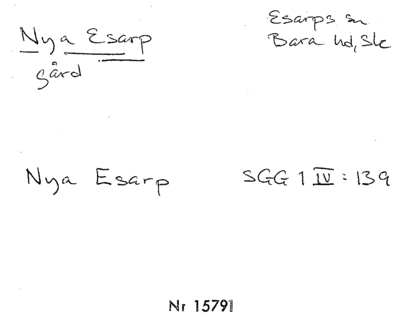 Nya Esarp
gård
Esarps sn
Bara hd, Sk
Nya Esarp
SGG 1 IV : 139
Nr 15791